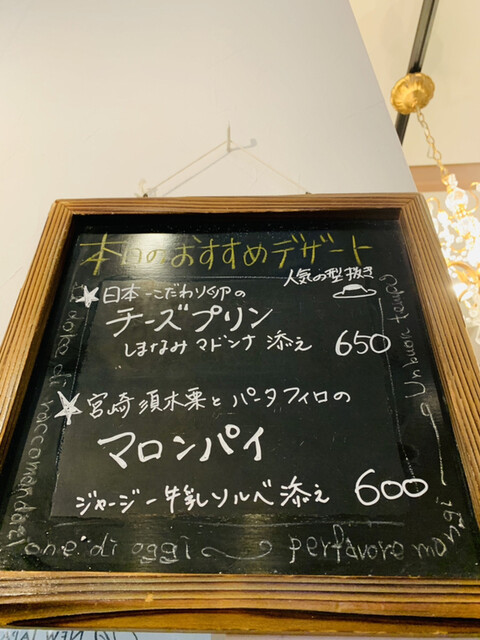 本日のおすすめデザート
人気の型抜き
★日本一こだわり卵の
チーズプリン
しまなみ マドンナ 添え 650
★宮崎 須木栗と パータフィロの
マロンパイ
ジャージー牛乳ソルベ 添え 600
Un buon tempo
dolce di raccomandazi
one di oggi
perfavore mangi
NEW JAPA